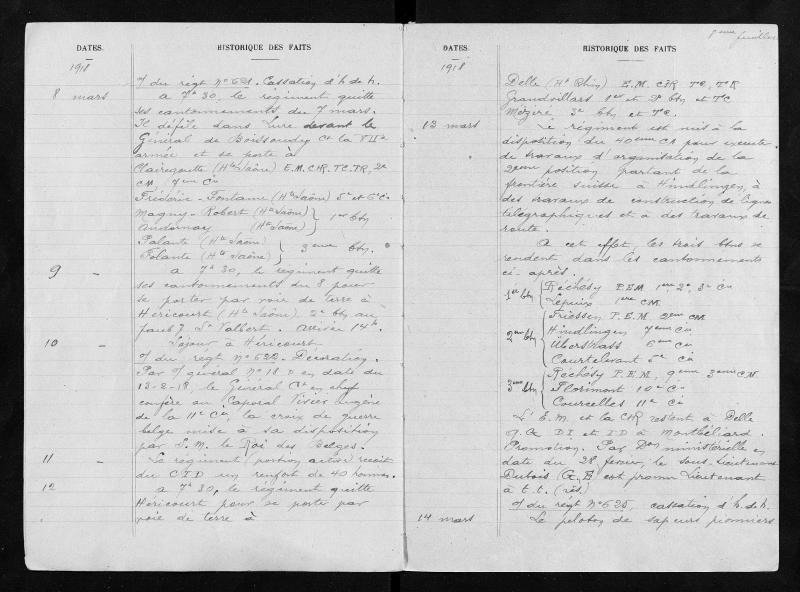 DATES. HISTORIQUE DES FAITS
1918
O/ du régt N° 621. Cassation d'h. de h.
8 mars a 7h30, le régiment quitte
ses cantonnements du 7 mars.
Il défile dans Lure devant le
Général de Boissoudy Ct la VIIe
armée et se porte à
Clairegoutte (Hte Saône) E.M. CHR. TC. TR, 2e
CM. 7eme Cie
Frédéric-Fontaine (Hte Saône) 5e et 6e Cie
Magny-Robert (Hte Saône) } 1er Btn
Andornay (Hte Saône)
Palante (Hte Saône) } 3eme Btn.
Folante (Hte Saône)
9 - a 7h30, le régiment quitte
ses cantonnements du 8 pour
se porter par voie de terre à
Héricourt (Hte Saône) 2e Btn au
faubg St Valbert. Arrivée 14h.
10 - Séjour à Héricourt
O/ du régt N° 622. Décoration.
Par O/ général N° 18 D en date du
13-2-18, le Général Ct en chef
confère au Caporal Vivier Eugène
de la 11e Cie, la croix de guerre
belge mise à sa disposition
par S. M. le Roi des Belges.
11 - Le régiment (portion active) reçoit
du C I D un renfort de 40 hommes.
12 a 7h30, le régiment quitte
Héricourt pour se porter par
voie de terre à
8eme feuillet
DATES. HISTORIQUE DES FAITS
1918
Delle (Ht Rhin) E.M. CHR TC, TR
Grandvillars 1er et 2e Btn et TC
3e Btn et TR.
13 mars Le régiment est mis à la
disposition du 40eme CA pour exécuter
de travaux d'organisation de la
2eme position partant de la
frontière suisse à Hindlingen, à
des travaux de construction de lignes
télégraphiques et à des travaux de
route.
A cet effet, les trois Btns se
rendent dans les cantonnements
ci après.
1er Btn { Réchésy P.E.M 1ère 2e, 3e Cie
Lepuix 1ere CM.
2eme Btn { Friessen, P.E.M 2eme CM.
Hindlingen 7eme Cie
Überstrass 6eme Cie
Courtelevant 5e Cie
3eme Btn { Réchésy P.E.M, 9eme 3eme CM.
Florimont 10e Cie
Courcelles 11e Cie
L'E.M. et la CHR restent à Delle
Q.G DI et ID à Montbéliard.
Promotion. Par Don ministérielle en
date du 28 février, le sous-Lieutenant
Dubois (G.E) est promu Lieutenant
à t.t. (rés.)
O/ du régt N° 625, cassation d'h. de h.
14 mars Le peloton de sapeurs pionniers